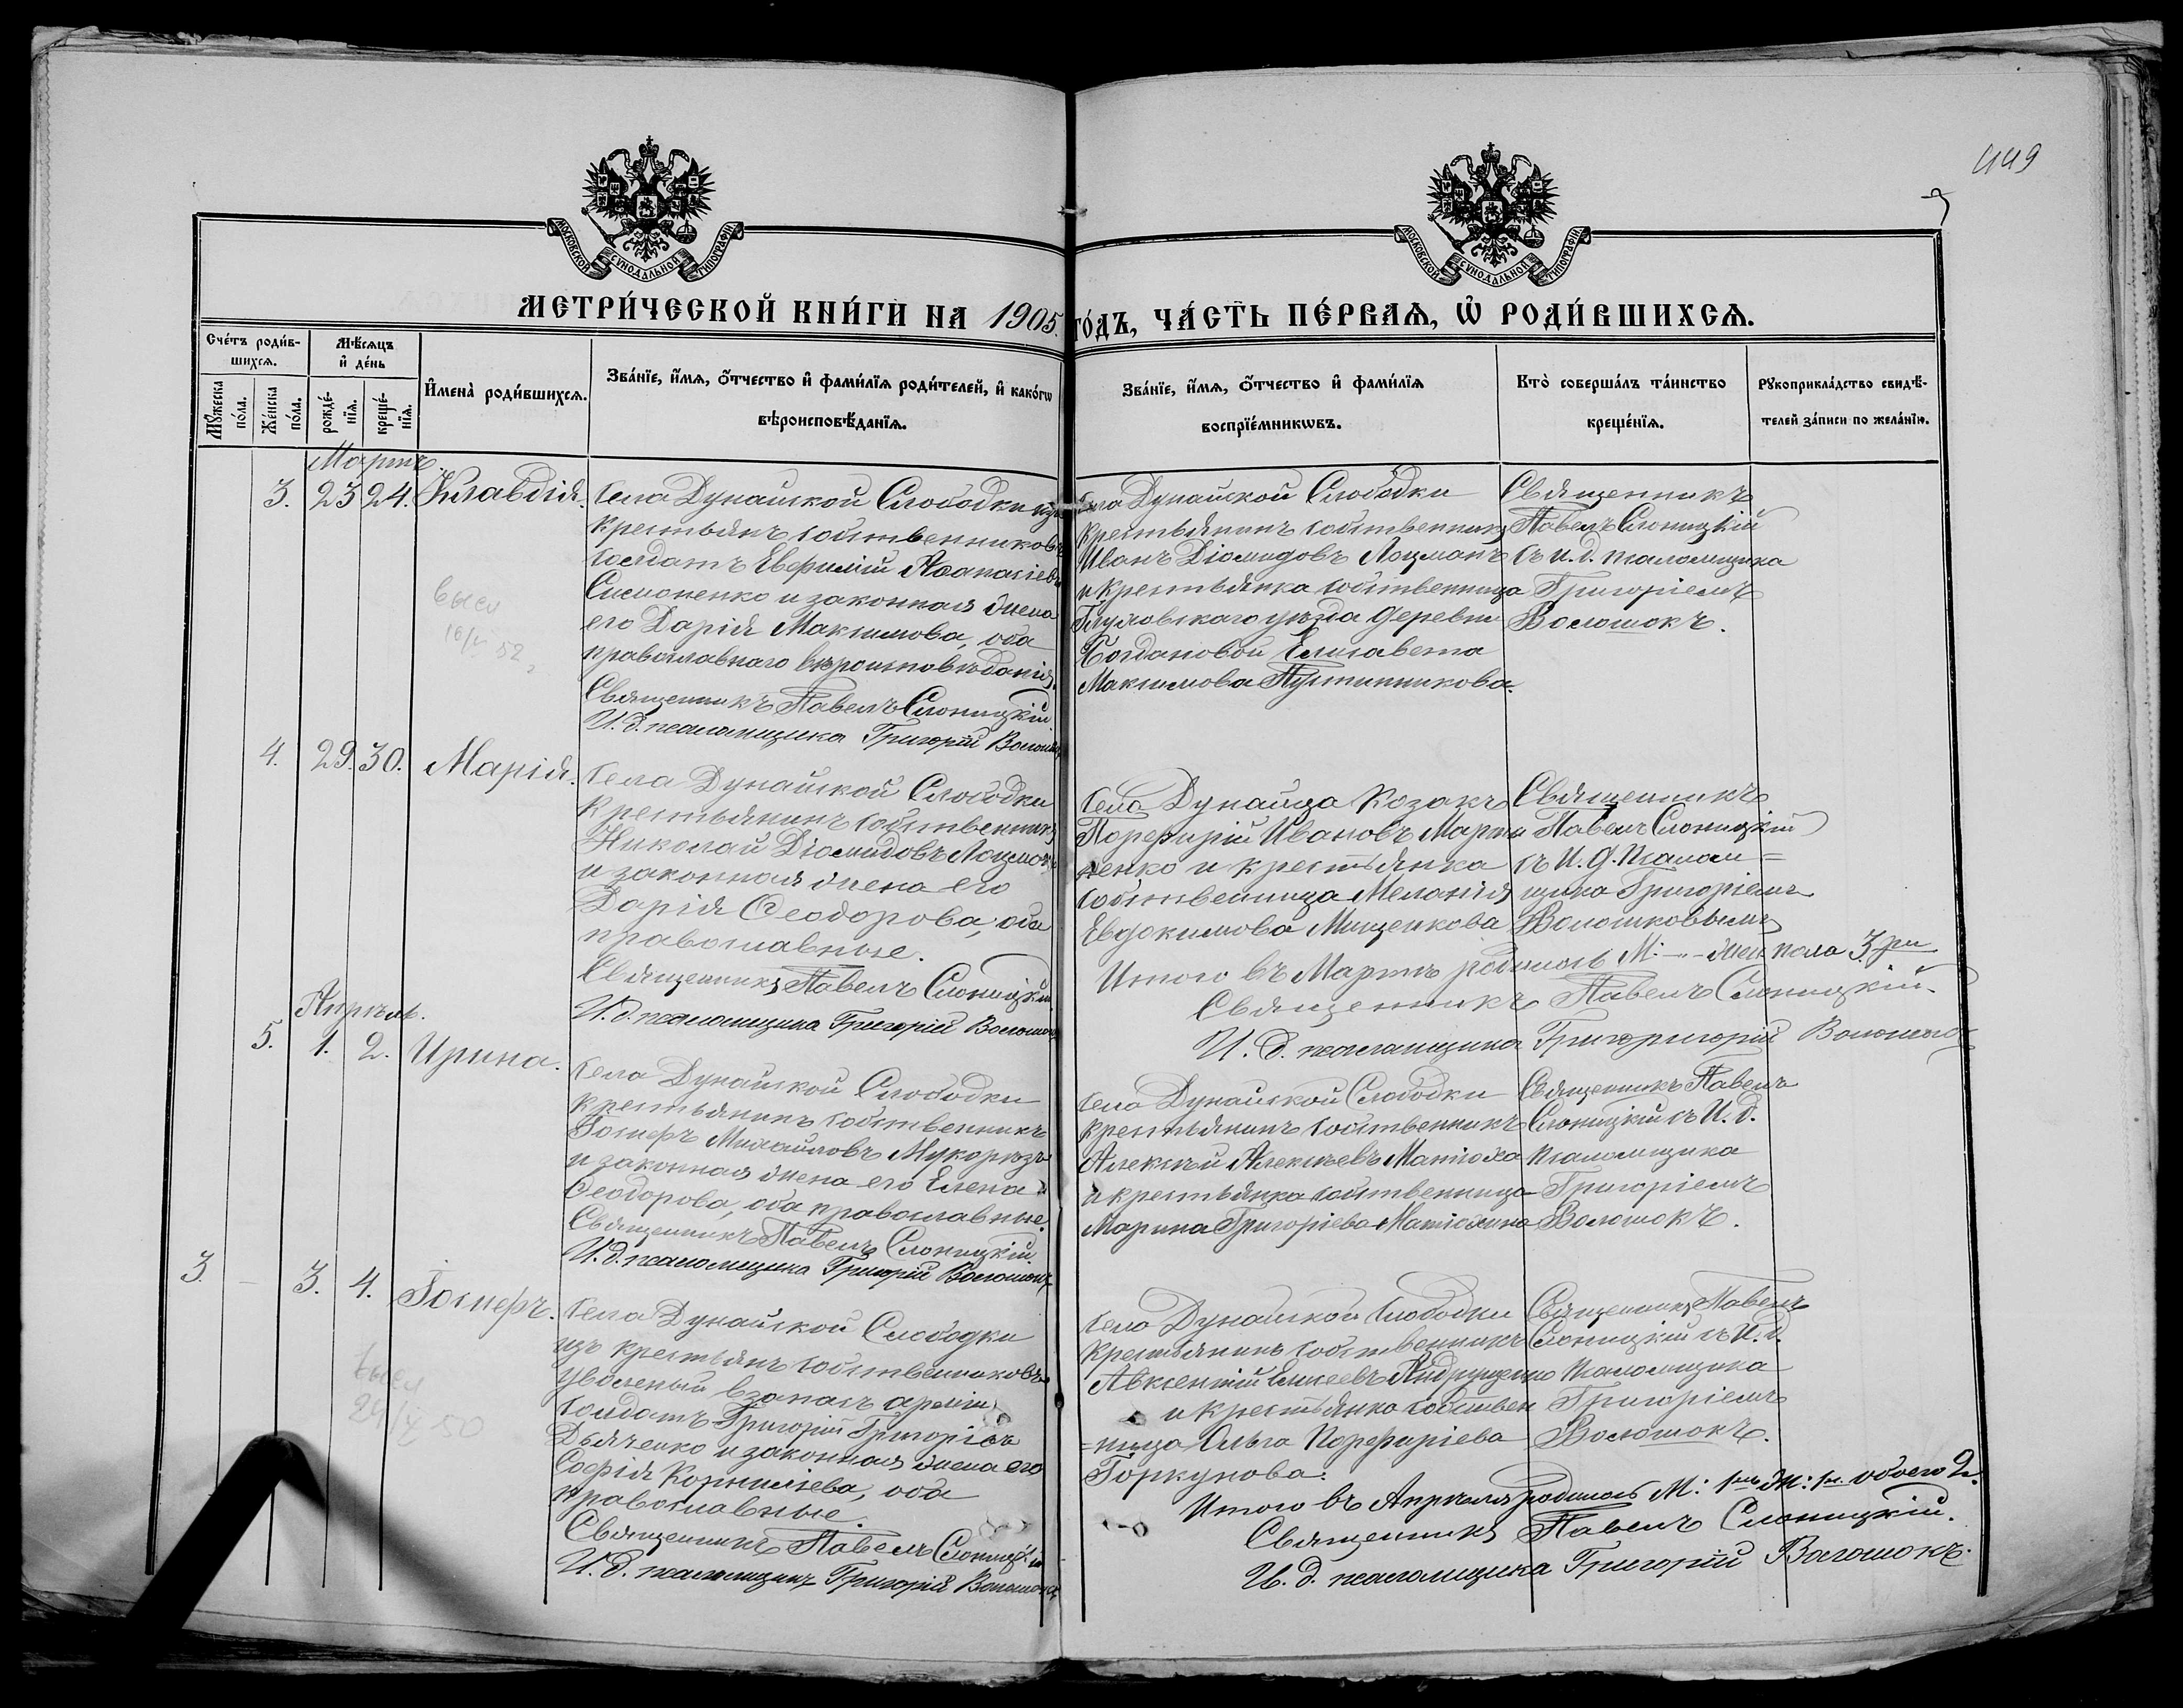 449
МОСКОВСКОЙ СѴНОДАЛЬНОЙ ТИПОГРАФІИ
МОСКОВСКОЙ СѴНОДАЛЬНОЙ ТИПОГРАФІИ
МЕТРИ́ЧЕСКОЙ КНИ́ГИ НА 1905. ГО́ДЪ, ЧА́СТЬ ПЕ́РВАѦ, Ѡ҆ РОДИ́ВШИХСѦ.
Сче́тъ роди́в-
шихсѧ.
Мѣ́сѧцъ
и҆ де́нь
Мꙋ́жеска
по́ла.
Же́нска
по́ла.
рожде́-
нїѧ.
креще́-
нїѧ.
И҆мена̀ роди́вшихсѧ.
Зва́нїе, и҆́мѧ, ѻ҆́тчество и҆ фами́лїѧ роди́телей, и҆ како́гѡ
вѣроисповѣ́данїѧ.
Зва́нїе, и҆́мѧ, ѻ҆́тчество и҆ фами́лїѧ
воспрїе́мникѡвъ.
Кто̀ соверша́лъ та́инство
креще́нїѧ.
Рꙋкоприкла́дство свидѣ́-
телей за́писи по жела́нїю.
Мартъ
3. 23 24. Клавдія.
Села Дунайской Слободки изъ
крестьянъ собственниковъ
солдатъ Евфимій Аѳанасіевъ
Симоненко и законная жена
его Дарія Максимова, оба
православнаго вѣроисповѣданія.
Священникъ Павелъ Слоницкій
И. д. псаломщика Григорій Волошокъ
Села Дунайской Слободки
крестьянинъ собственникъ
Иванъ Діомидовъ Лоцманъ
и крестьянка собственница
Глуховскаго уѣзда деревни
Богдановой Елисавета
Максимова Пустынникова.
Священникъ
Павелъ Слоницкій
съ и. д. псаломщика
Григоріемъ
Волошокъ.
4. 29. 30. Марія.
Села Дунайской Слободки
крестьянинъ собственникъ
Николай Діомидовъ Лоцманъ
и законная жена его
Дарія Ѳеодорова, оба
православные.
Священникъ Павелъ Слоницкій
И. д. псаломщика Григорій Волошокъ
Села Дунайца козакъ
Порфирій Ивановъ Марти
ненко и крестьянка
собственница Меланія
Евдокимова Мищенкова
Священникъ
Павелъ Слоницкій
съ И. д. псалом=
щика Григоріемъ
Волошковымъ
Итого въ Мартѣ родилось М: — жен пола 3.ри
Священникъ Павелъ Слоницкій.
И. д. псаломщика Григоригорій Волошокъ
Апрѣль.
5. 1. 2. Ирина.
Села Дунайской Слободки
крестьянинъ собственникъ
Іосифъ Михайловъ Мукорѣзъ
и законная жена его Елена
Ѳеодорова, оба православные.
Священникъ Павелъ Слоницкій.
И. д. псаломщика Григорій Волошокъ
Села Дунайской Слободки
крестьянинъ собственникъ
Алексѣй Алексѣевъ Матюха
и крестьянка собственница
Марина Григоріева Матюхина
Священникъ Павелъ
Слоницкій съ И. д.
псаломщика
Григоріемъ
Волошокъ.
3. — 3. 4. Іосифъ.
Села Дунайской Слободки
изъ крестьянъ собственниковъ
уволеный в запасъ арміи
солдатъ Григорій Григоріевъ
Дьяченко и законная жена его
Софія Корниліева, оба
православные.
Священникъ Павелъ Слоницкій
И. д. псаломщика Григорій Волошокъ
Села Дунайской Слободки
крестьянинъ собственникъ
Авксентій Елисеевъ Андрущенко
и крестьянка собствен
=ница Ольга Порфиріева
Горкунова.
Священникъ Павелъ
Слоницкій съ И. д.
псаломщика
Григоріемъ
Волошокъ.
Итого въ Апрѣлѣ родилось М: 1нъ Ж: 1на обоего 2.
Священникъ Павелъ Слоницкій.
И. д. псаломщика Григорій Волошокъ.